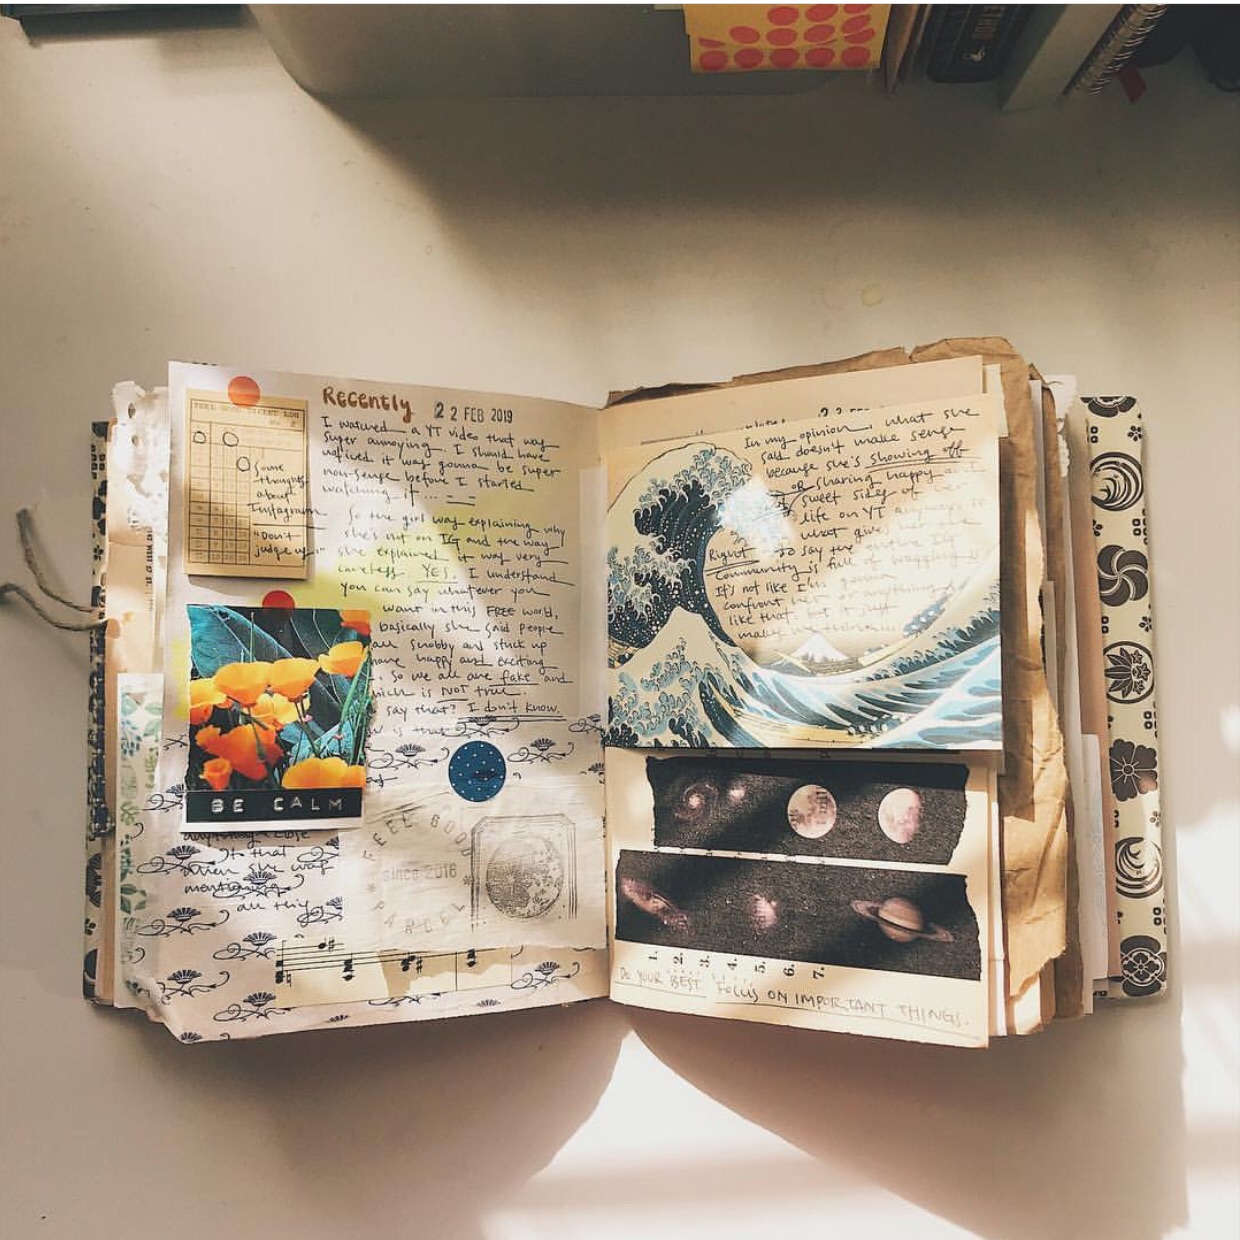 Some
thoughts
about
Instagram
"Don't
judge us"
Recently
22 FEB 2019
I watched a YT video that was
super annoying. I should have
noticed it was gonna be super
non-sense before I started
watching it ...
So the girl was explaining why
she's not on IG and the way
she explained it was very
careless. YES, I understand
you can say whatever you
want in this FREE world,
basically she said people
are snobby and stuck up
have happy and exciting
, so we all are fake and
which is NOT true.
say that? I don't know.
is that
BE CALM
close
to that
when she was
mentioning
all this
FEEL GOOD
since 2016
PARCEL
22 FEB
In my opinion, what she
said doesn't make sense
because she's showing off
or sharing happy
sweet sides of
life on YT
what give
Right to say the entire IG
community is full of
It's not like I'm gonna
confront her or anything
like that, but it just
make me
1. 2. 3. 4. 5. 6. 7.
Do YOUR BEST Focus ON IMPORTANT THINGS.